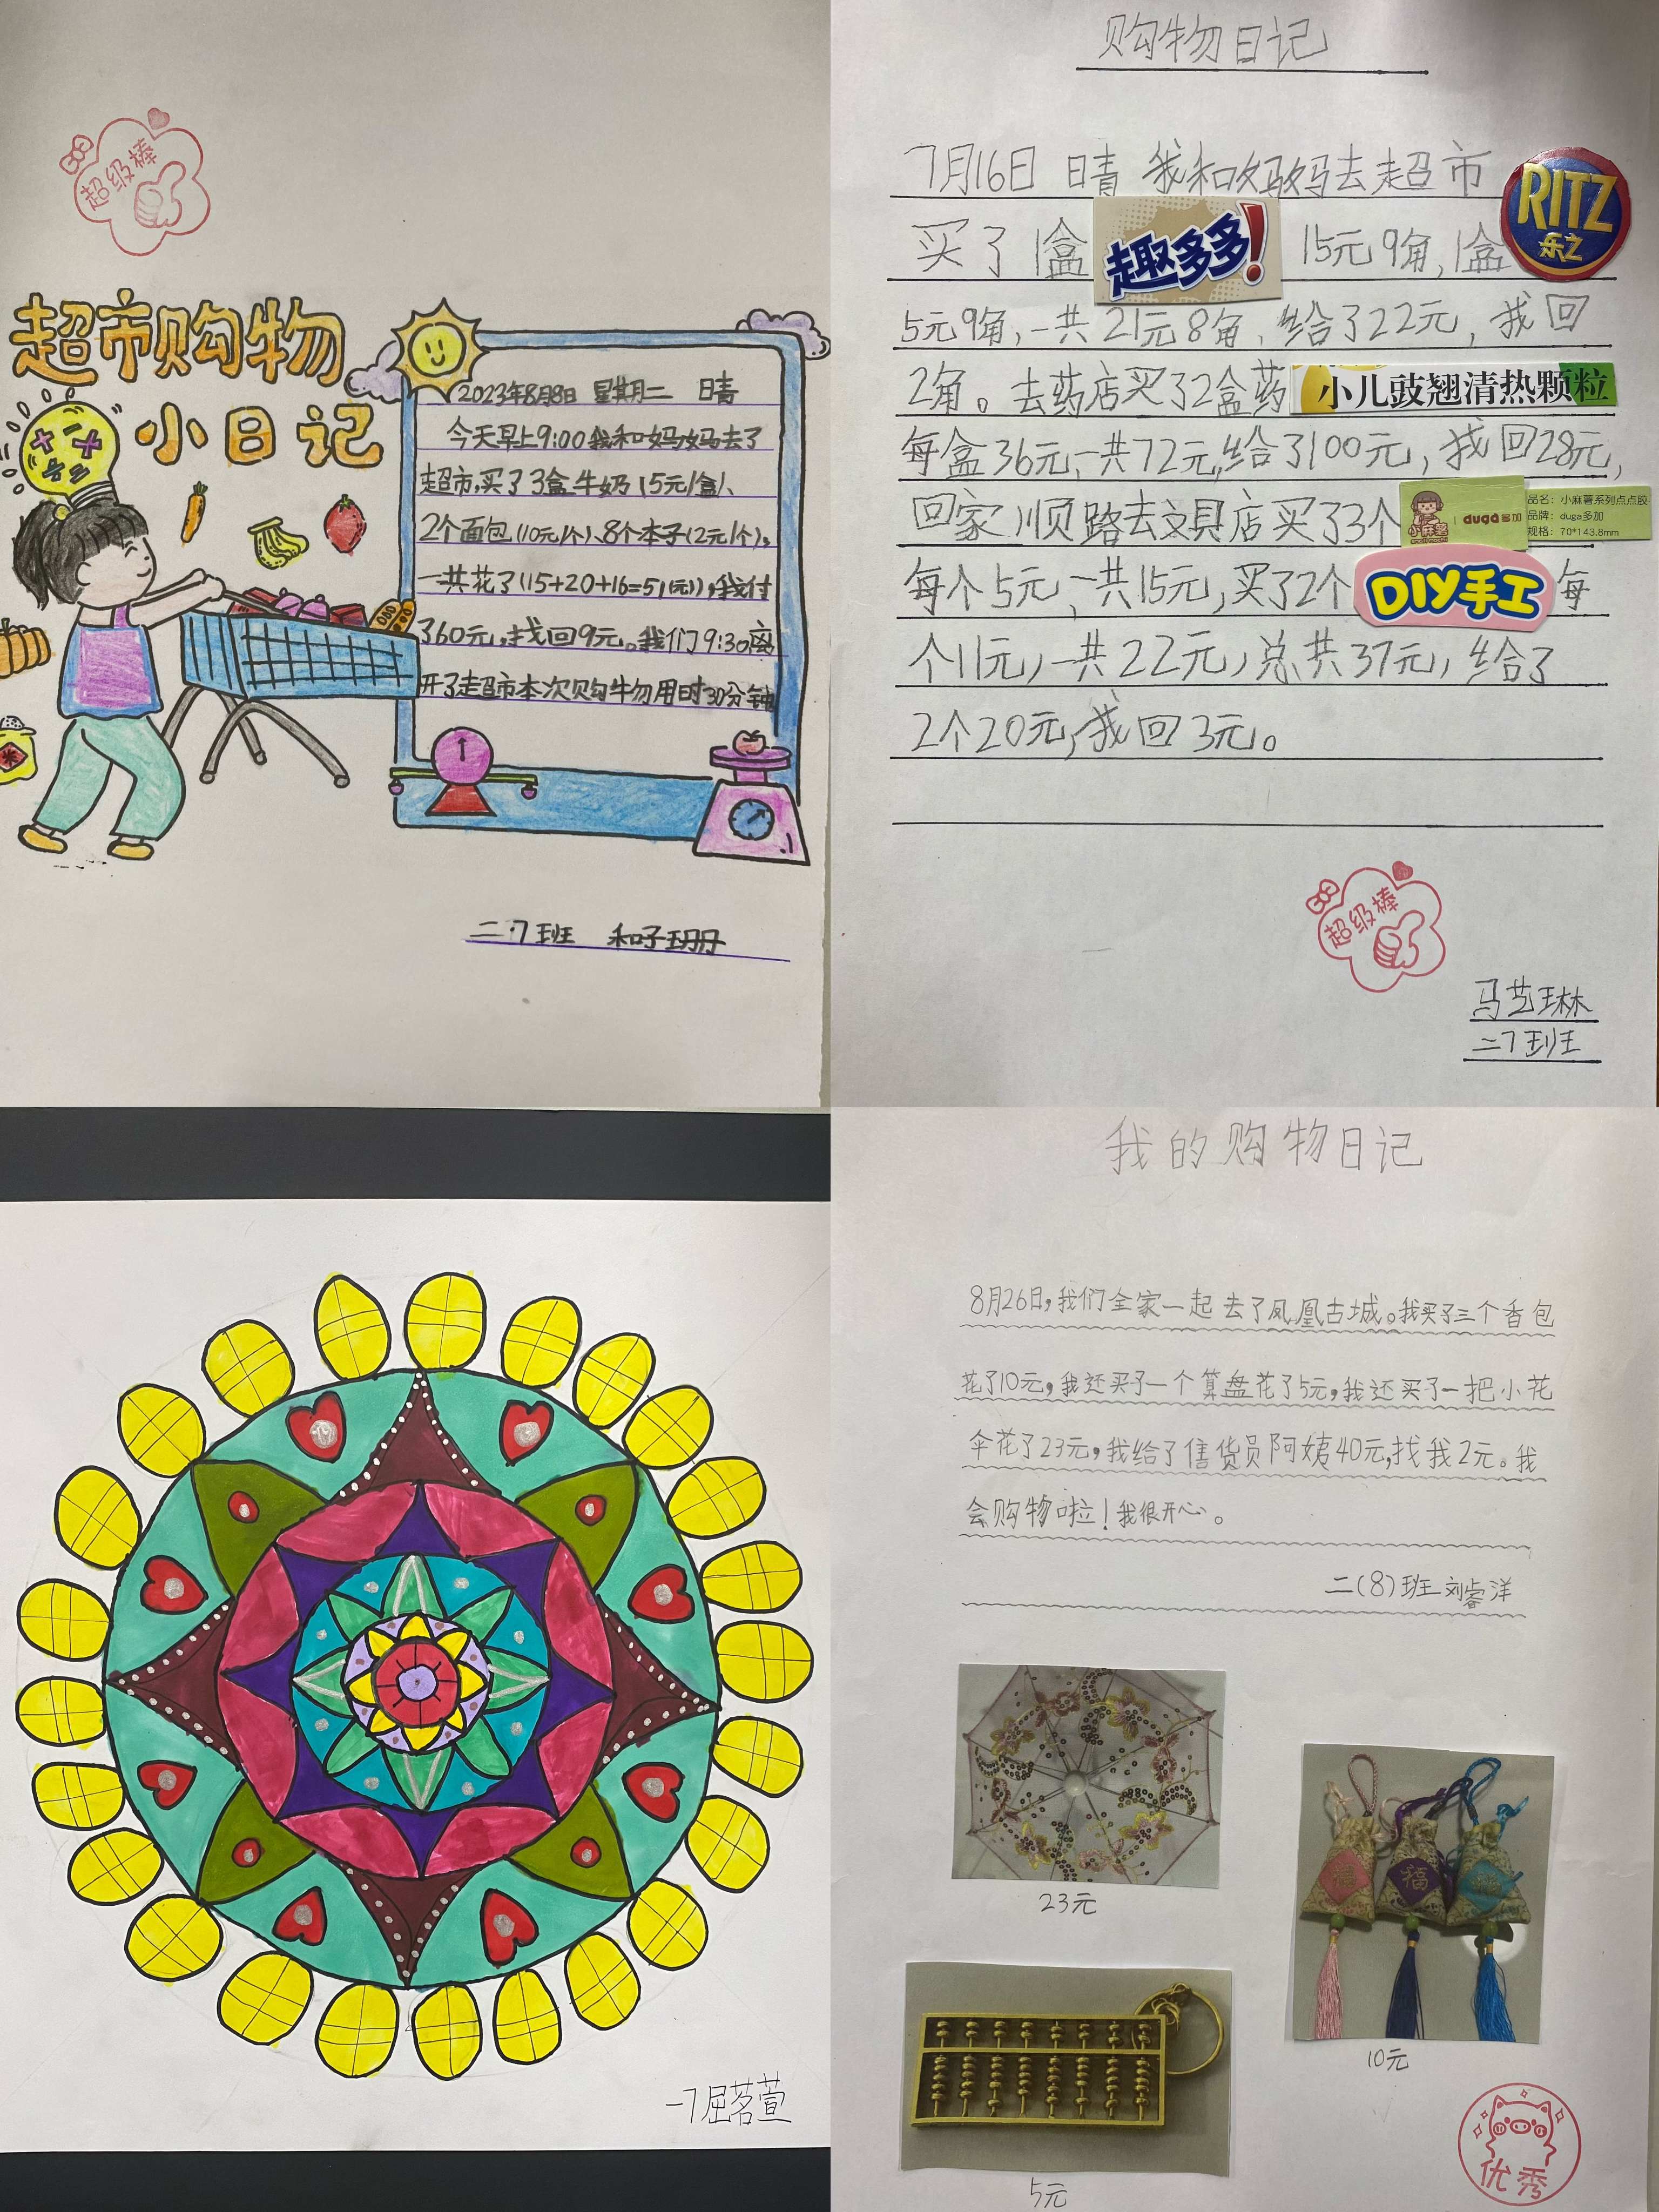 超级棒
超市购物
小日记
2023年8月8日 星期二 晴
今天早上9:00我和妈妈去了
超市,买了3盒牛奶(5元/盒)、
2个面包(10元/个)、8个本子(2元/个)。
一共花了(15+20+16=51(元)),我付
了60元,找回9元。我们9:30离
开了超市本次购物用时30分钟
米
二.7班 和子玥
购物日记
7月16日 晴 我和妈妈去超市
买了1盒趣多多! 15元9角,1盒RITZ乐之
5元9角,一共21元8角,给了22元,我回
2角。去药店买了2盒药小儿豉翘清热颗粒
每盒36元,一共72元,给了100元,我回28元,
回家顺路去文具店买了3个小麻薯 duga多加
品名:小麻薯系列点点胶
品牌:duga多加
规格:70*143.8mm
每个5元,一共15元,买了2个DIY手工每
个11元,一共22元,总共37元,给了
2个20元,我回3元。
超级棒
马艺琳
二7班
一7屈茗萱
我的购物日记
8月26日,我们全家一起去了凤凰古城。我买了三个香包
花了10元,我还买了一个算盘花了5元,我还买了一把小花
伞花了23元,我给了售货员阿姨40元,找我2元。我
会购物啦!我很开心。
二(8)班刘睿洋
23元
福
10元
5元
优秀